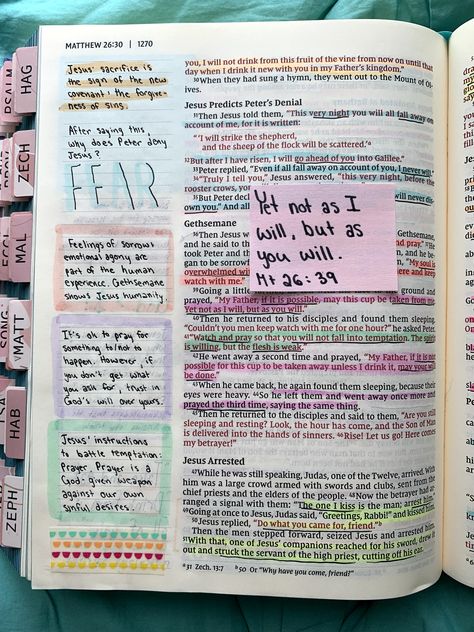 MATTHEW 26:30 | 1270
PSALM
HAG
ZECH
MAL
SONG
MATT
HAB
ZEPH
Jesus' sacrifice is
the sign of the new
covenant: the forgive-
ness of sins.
After saying this,
why does Peter deny
Jesus?
FEAR
Feelings of sorrows
emotional agony are
part of the human
experience. Gethsemane
shows Jesus humanity.
It's ok to pray for
something to not to
happen. However if
you don't get what
you ask for, trust in
God's will over yours.
Jesus' instructions
to battle temptation:
Prayer. Prayer is a
God-given weapon
against our own
sinful desires.
you, I will not drink from this fruit of the vine from now on until that
day when I drink it new with you in my Father's kingdom."
30When they had sung a hymn, they went out to the Mount of Ol-
ives.
Jesus Predicts Peter's Denial
31Then Jesus told them, "This very night you will all fall away on
account of me, for it is written:
"'I will strike the shepherd,
and the sheep of the flock will be scattered.'a
32But after I have risen, I will go ahead of you into Galilee."
33Peter replied, "Even if all fall away on account of you, I never will."
34"Truly I tell you," Jesus answered, "this very night, before the
rooster crows, you
35But Peter decl
own you." And all
Yet not as I
will, but as
you will.
Mt 26:39
Gethsemane
36Then Jesus w
and he said to th
took Peter and th
gan to be sorrowf
overwhelmed wit
watch with me."
pray." 37He
and be-
"My soul is
here and keep
39Going a little
ground and
prayed, "My Father, if it is possible, may this cup be taken from me.
Yet not as I will, but as you will."
40Then he returned to his disciples and found them sleeping.
"Couldn't you men keep watch with me for one hour?" he asked Peter.
41"Watch and pray so that you will not fall into temptation. The spirit
is willing, but the flesh is weak."
42He went away a second time and prayed, "My Father, if it is not
possible for this cup to be taken away unless I drink it, may your will
be done."
43When he came back, he again found them sleeping, because their
eyes were heavy. 44So he left them and went away once more and
prayed the third time, saying the same thing.
45Then he returned to the disciples and said to them, "Are you still
sleeping and resting? Look, the hour has come, and the Son of Man
is delivered into the hands of sinners. 46Rise! Let us go! Here comes
my betrayer!"
Jesus Arrested
47While he was still speaking, Judas, one of the Twelve, arrived. With
him was a large crowd armed with swords and clubs, sent from the
chief priests and the elders of the people. 48Now the betrayer had ar-
ranged a signal with them: "The one I kiss is the man; arrest him."
49Going at once to Jesus, Judas said, "Greetings, Rabbi!" and kissed him.
50Jesus replied, "Do what you came for, friend."b
Then the men stepped forward, seized Jesus and arrested him.
51With that, one of Jesus' companions reached for his sword, drew it
out and struck the servant of the high priest, cutting off his ear.
a31 Zech. 13:7 b50 Or "Why have you come, friend?"